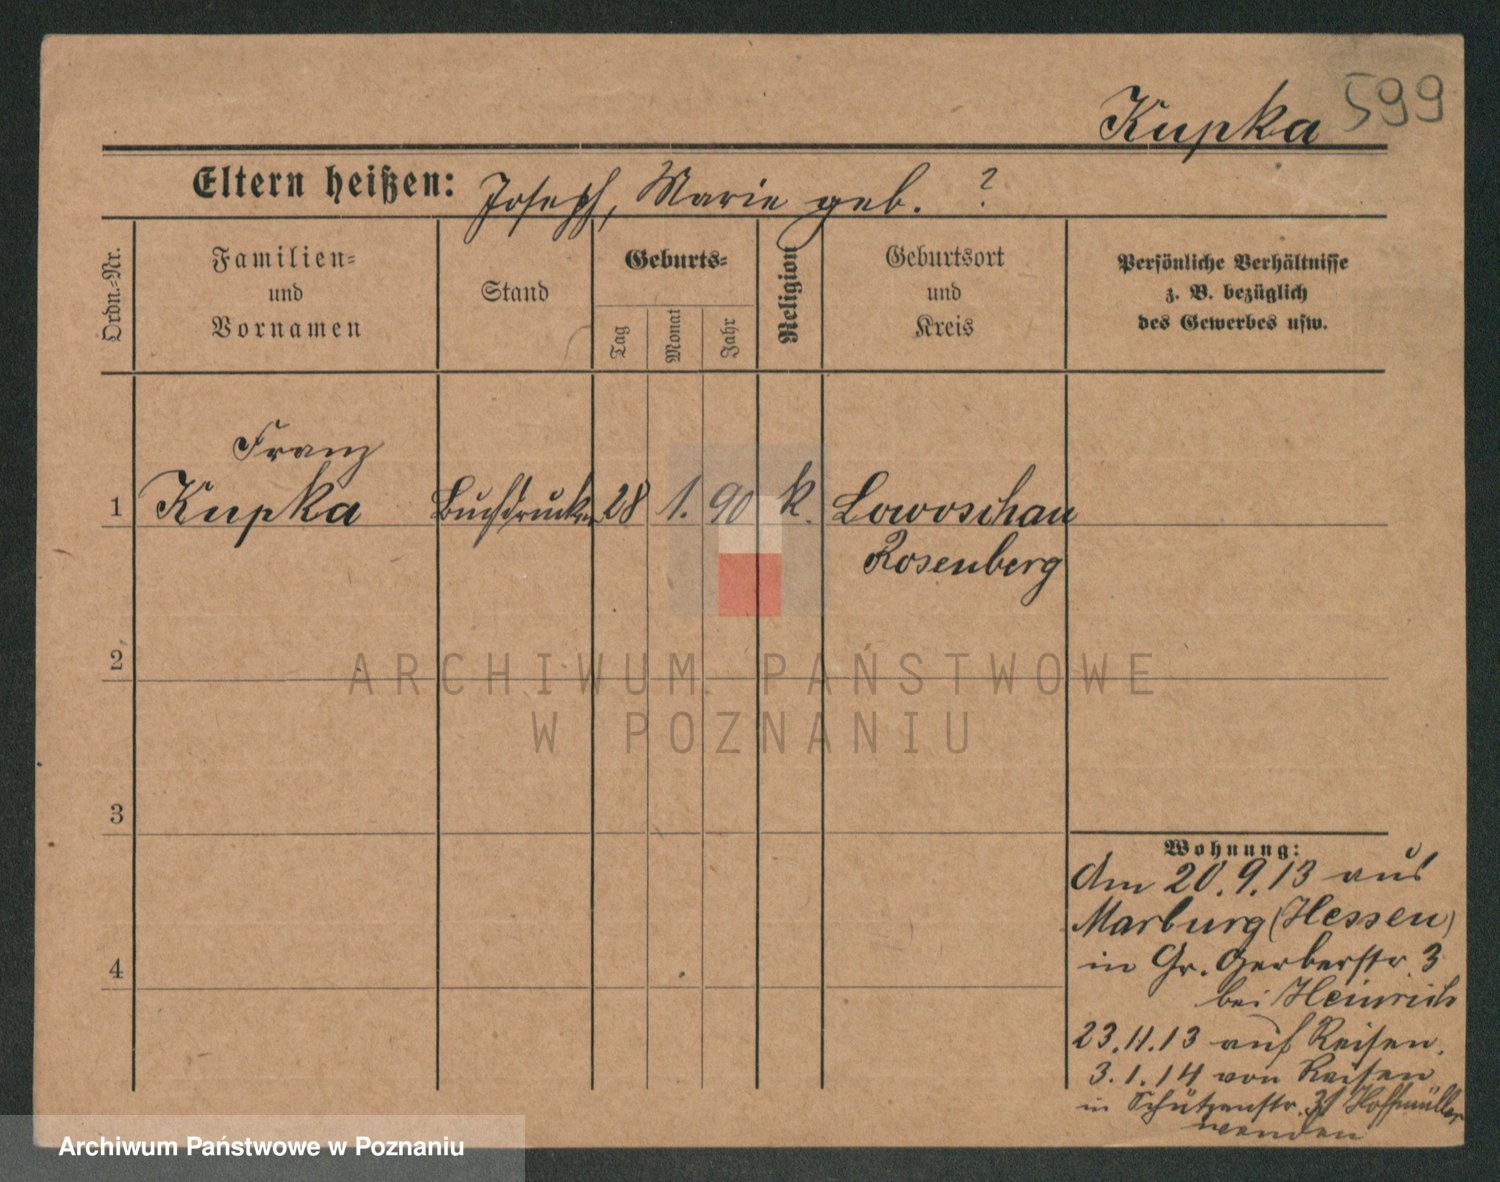 Kupka 599
Eltern heißen: Joseph, Marie geb. ?
Ordn.-Nr.
Familien-
und
Vornamen
Stand
Geburts-
Tag
Monat
Jahr
Religion
Geburtsort
und
Kreis
Persönliche Verhältnisse
z. B. bezüglich
des Gewerbes usw.
Franz
1 Kupka Buchdrucker 28 1. 90 k. Lowoschau
Rosenberg
2
3
4
Wohnung:
Am 20.9.13 aus
Marburg (Hessen)
in Gr. Gerberstr. 3
bei Heinrich
23.11.13 auf Reisen.
3.1.14 von Reisen
in Schützenstr. 31 Hoffmüller
ARCHIWUM PAŃSTWOWE
W POZNANIU
Archiwum Państwowe w Poznaniu